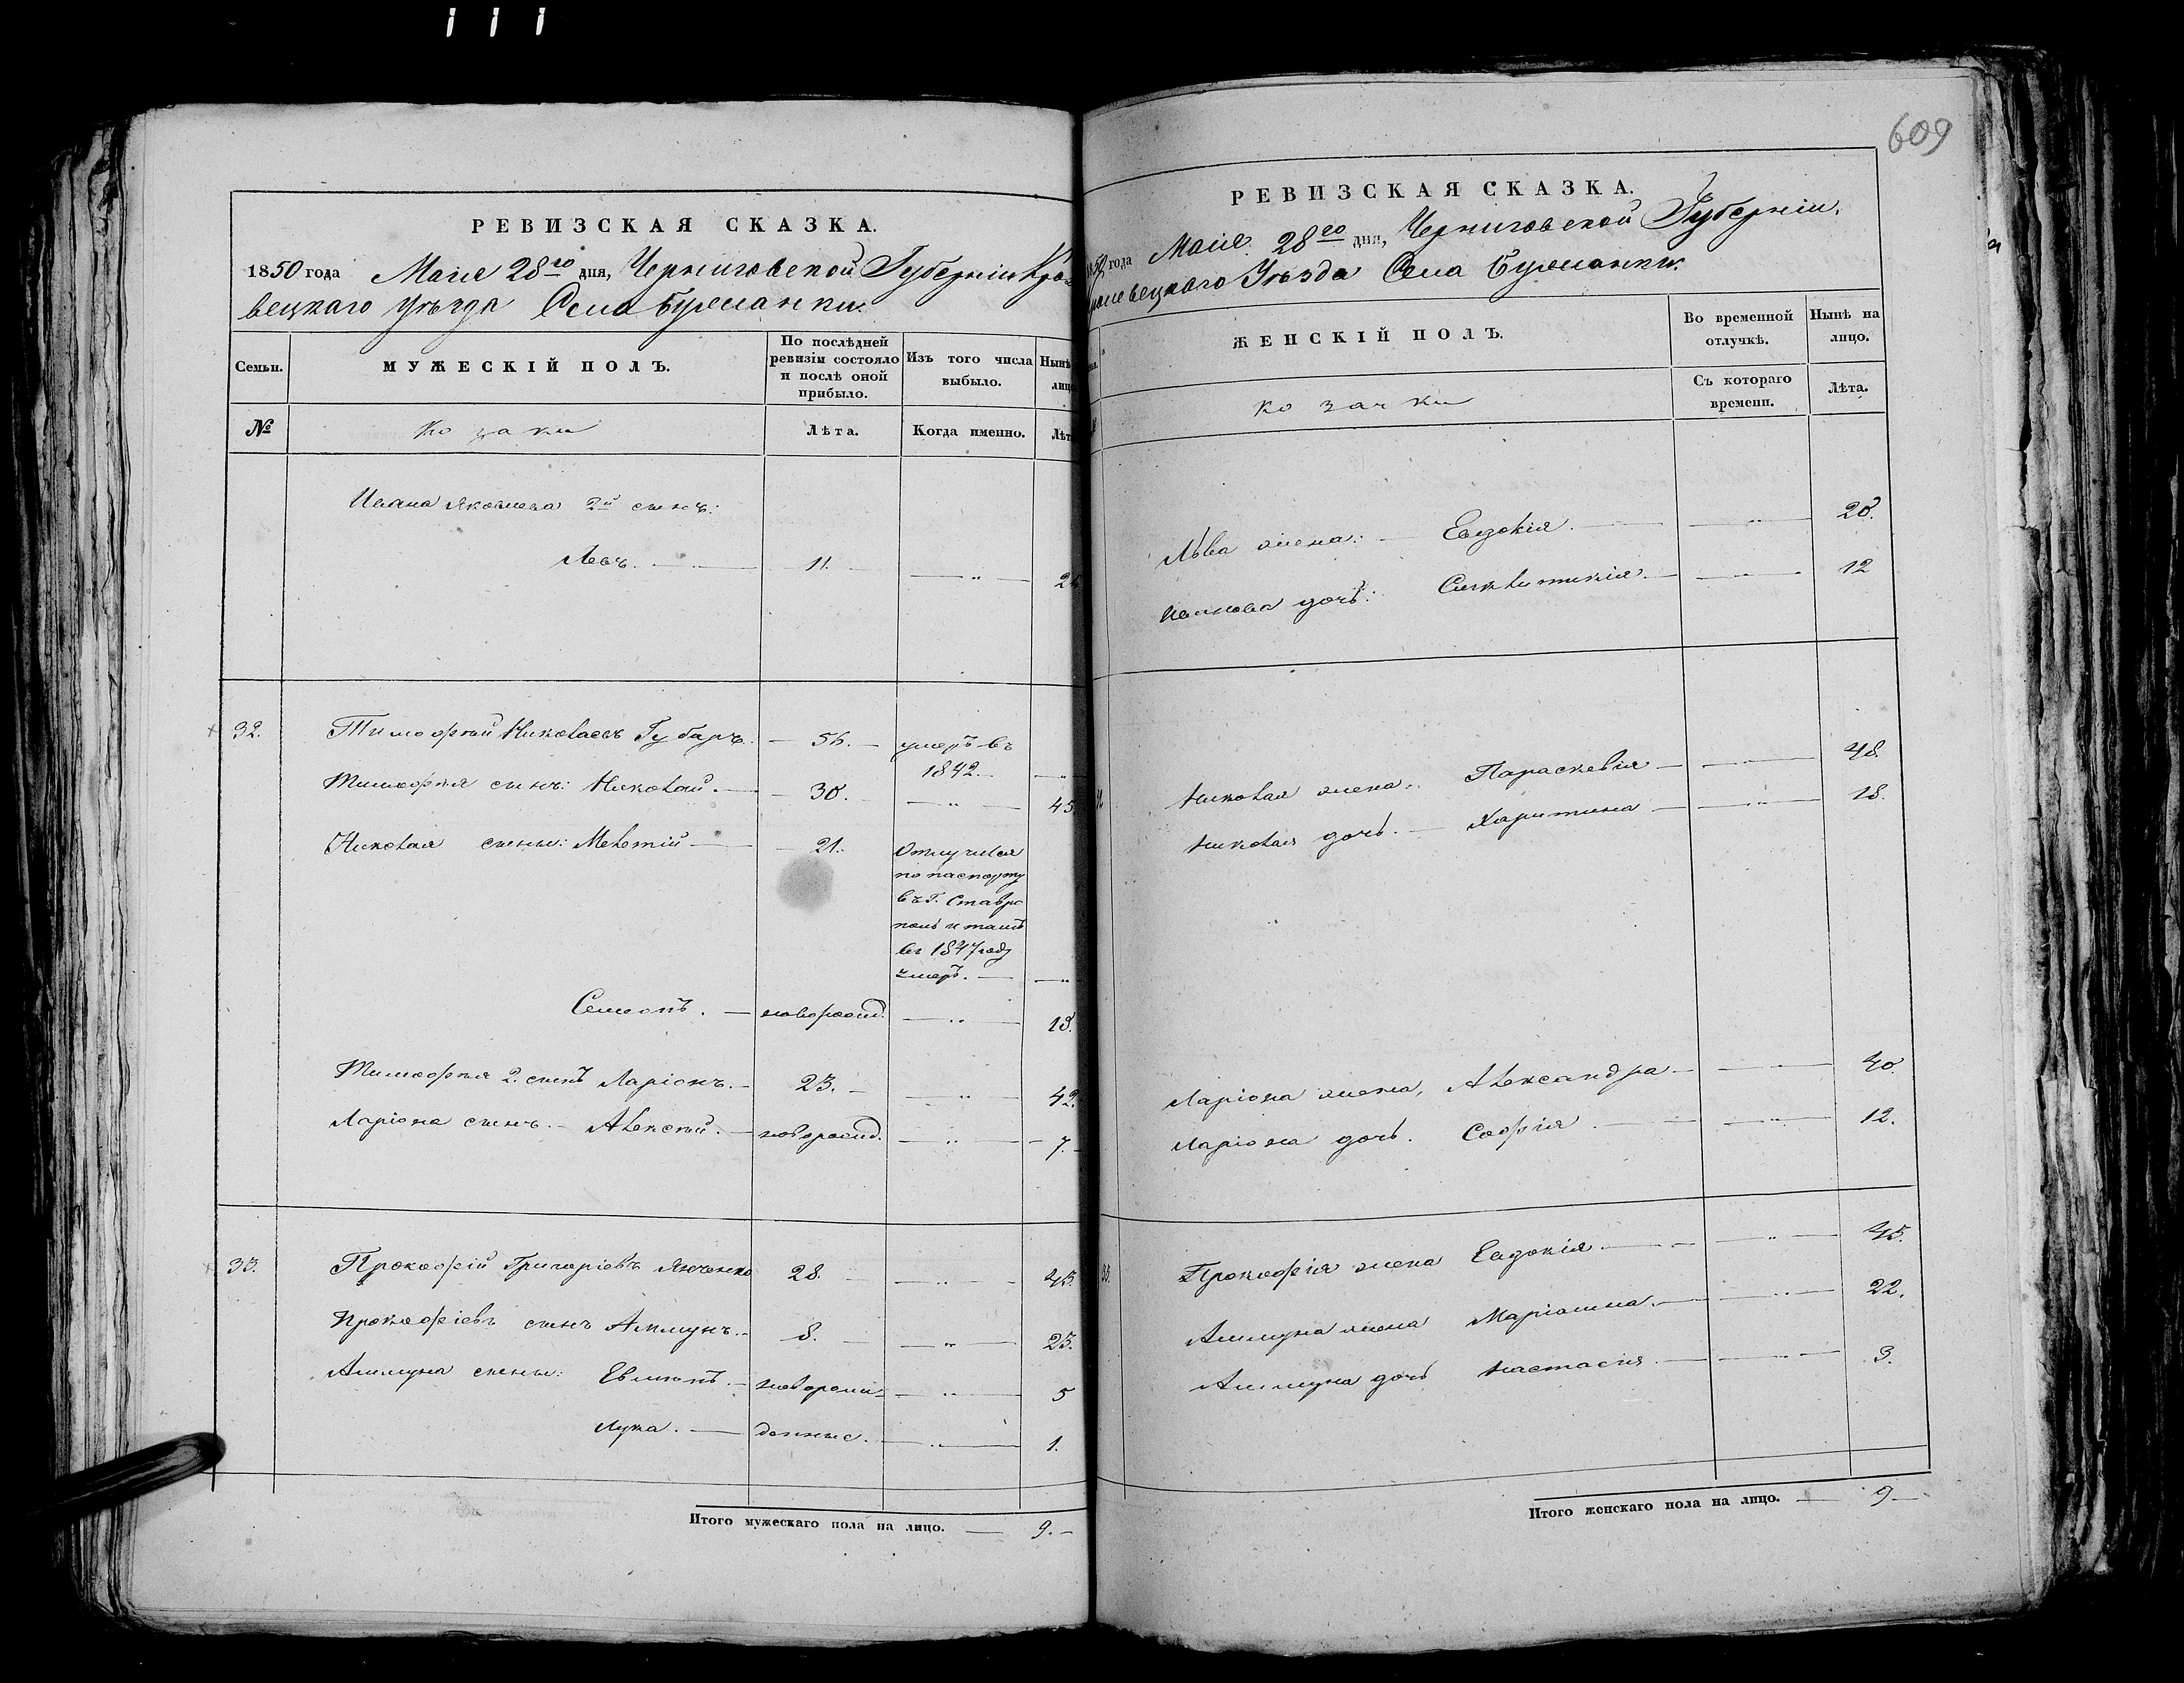 РЕВИЗСКАЯ СКАЗКА.
1850 года Маія 28го дня, Черниговской Губерніи Кро-
вецкаго Уѣзда Села Бурманки.
Семьи. МУЖЕСКІЙ ПОЛЪ. По послѣдней ревизіи состояло и послѣ оной прибыло. Изъ того числа выбыло. Нынѣ лицо
№ Козаки Лѣта. Когда именно. Лѣт
Ивана Яковлева 2й сынъ:
Левъ. 11.
32. Тимофѣй Николаевъ Губарь. 56. умеръ въ
1842.
Тимофѣя сынъ: Николай. 30. 45.
Николая сыны: Мелетій 21. Отлучился
по паспорту
въ г. Ставро
поль и тамъ
въ 1847 году
умеръ.
Семенъ. новорожд. 18.
Тимофѣя 2. сынъ Ларіонъ. 23. 42.
Ларіона сынъ. Алексѣй. новорожд. 7.
33. Прокофій Григоріевъ Янченко 28. 43.
Прокофіевъ сынъ Аммунъ. 8. 23.
Аммуна сыны: новорож- 5
Лука. денные. 1.
Итого мужескаго пола на лицо. 9.
609
РЕВИЗСКАЯ СКАЗКА.
1850 года Маія 28го дня, Черниговской Губерніи,
Кролевецкаго Уѣзда Села Бурманки.
ЖЕНСКІЙ ПОЛЪ. Во временной отлучкѣ. Нынѣ на лицо.
козачки Съ котораго времени. Лѣта.
Льва жена: Евдокія. 20.
Иванова дочь: Синклитикія. 12
32 Николая жена. Параскевія 48.
Николая дочь. Харитина 18.
Ларіона жена, Александра 40.
Ларіона дочь. Софія 12.
33. Прокофія жена Евдокія. 45.
Аммуна жена Маріамна. 22.
Аммуна дочь Настасія. 3.
Итого женскаго пола на лицо. 9